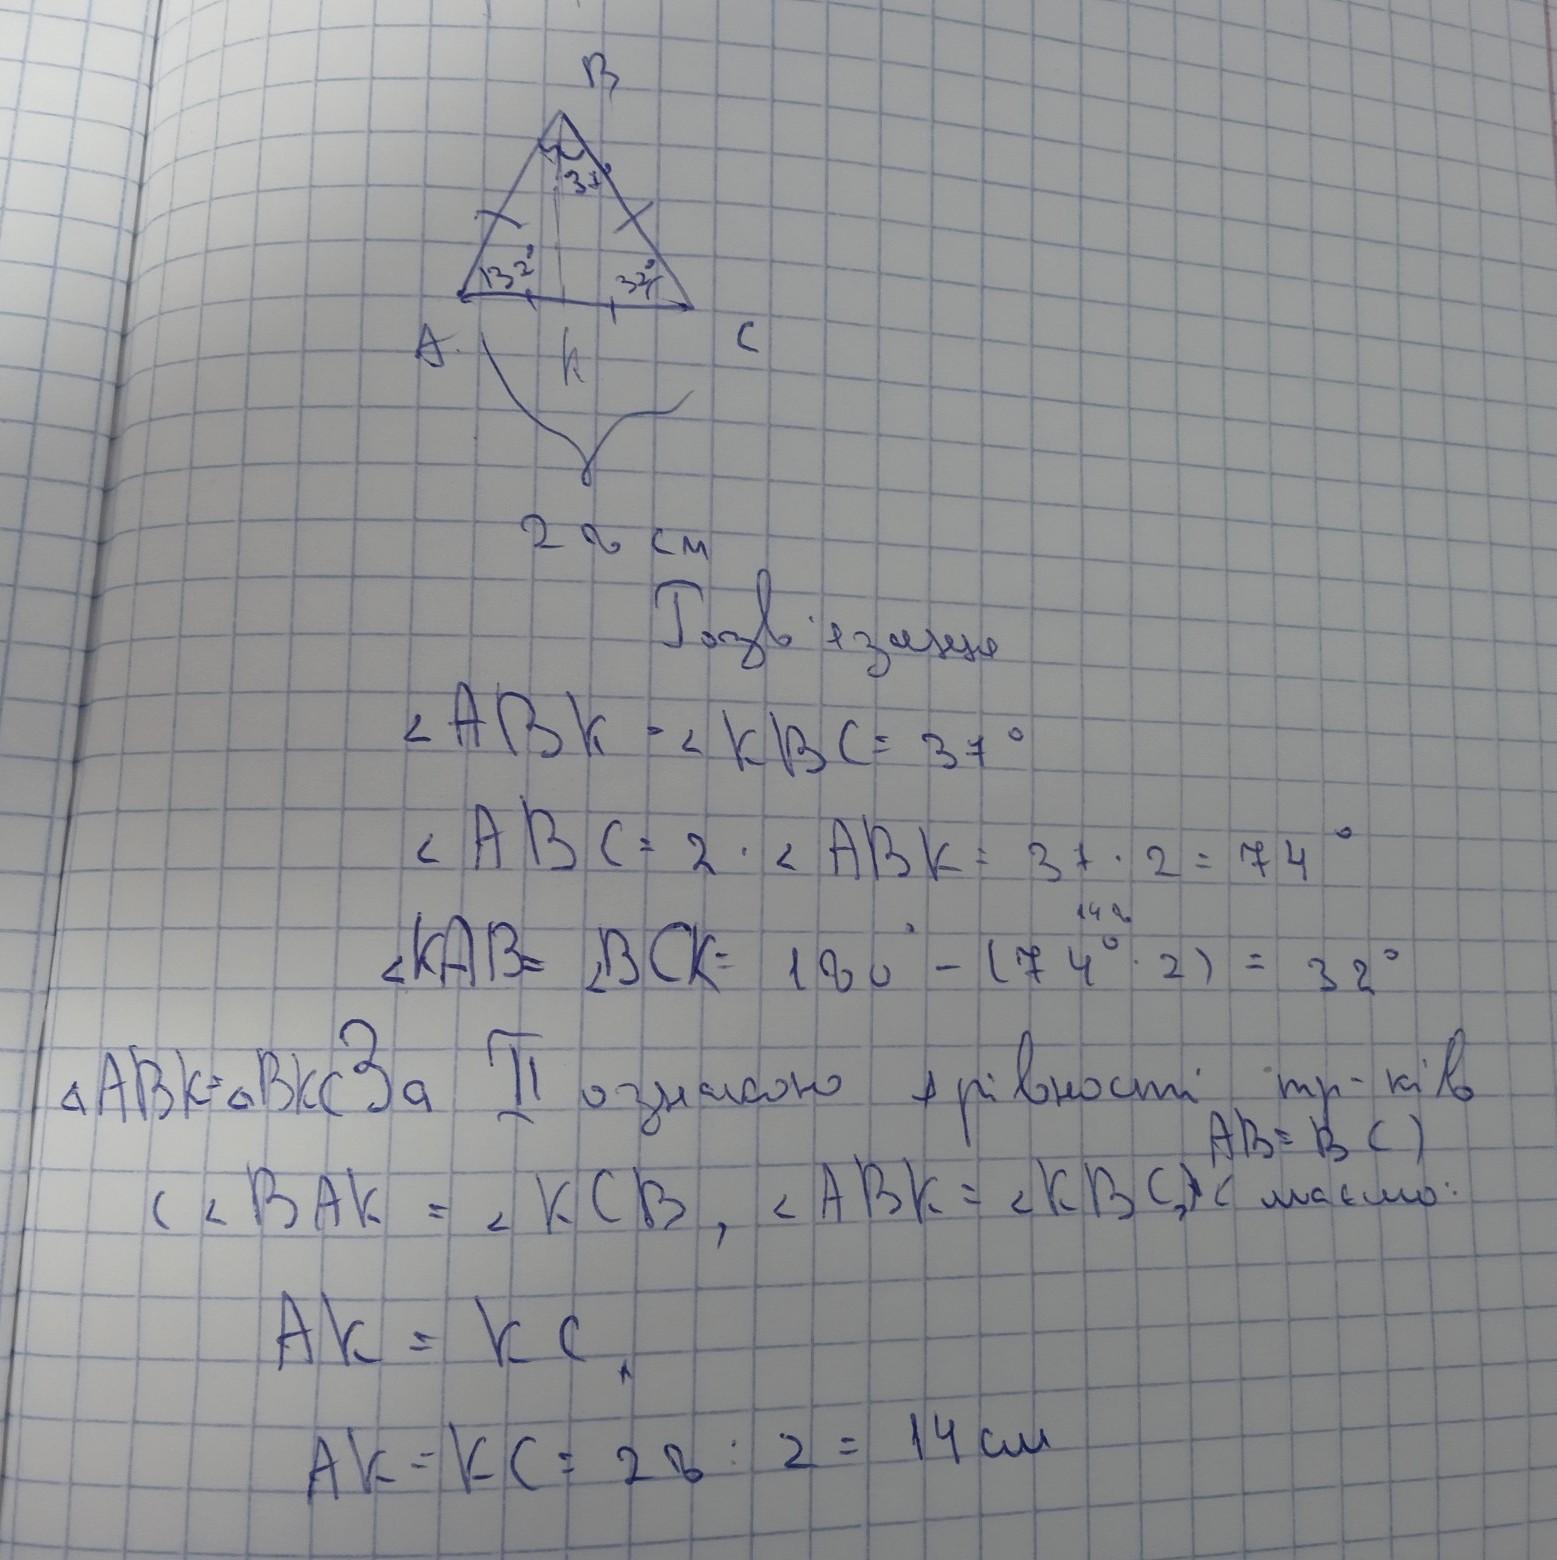 B
37°
32° 32°
A K C
28 см
Розв'язання
∠ABK = ∠KBC = 37°
∠ABC = 2 · ∠ABK = 37 · 2 = 74°
148
∠KAB = ∠BCK = 180° - (74° · 2) = 32°
△ABK = △BKC За II ознакою рівності тр-ків
AB = BC)
(∠BAK = ∠KCB, ∠ABK = ∠KBC, маємо:
AK = KC,
AK = KC = 28 : 2 = 14 см